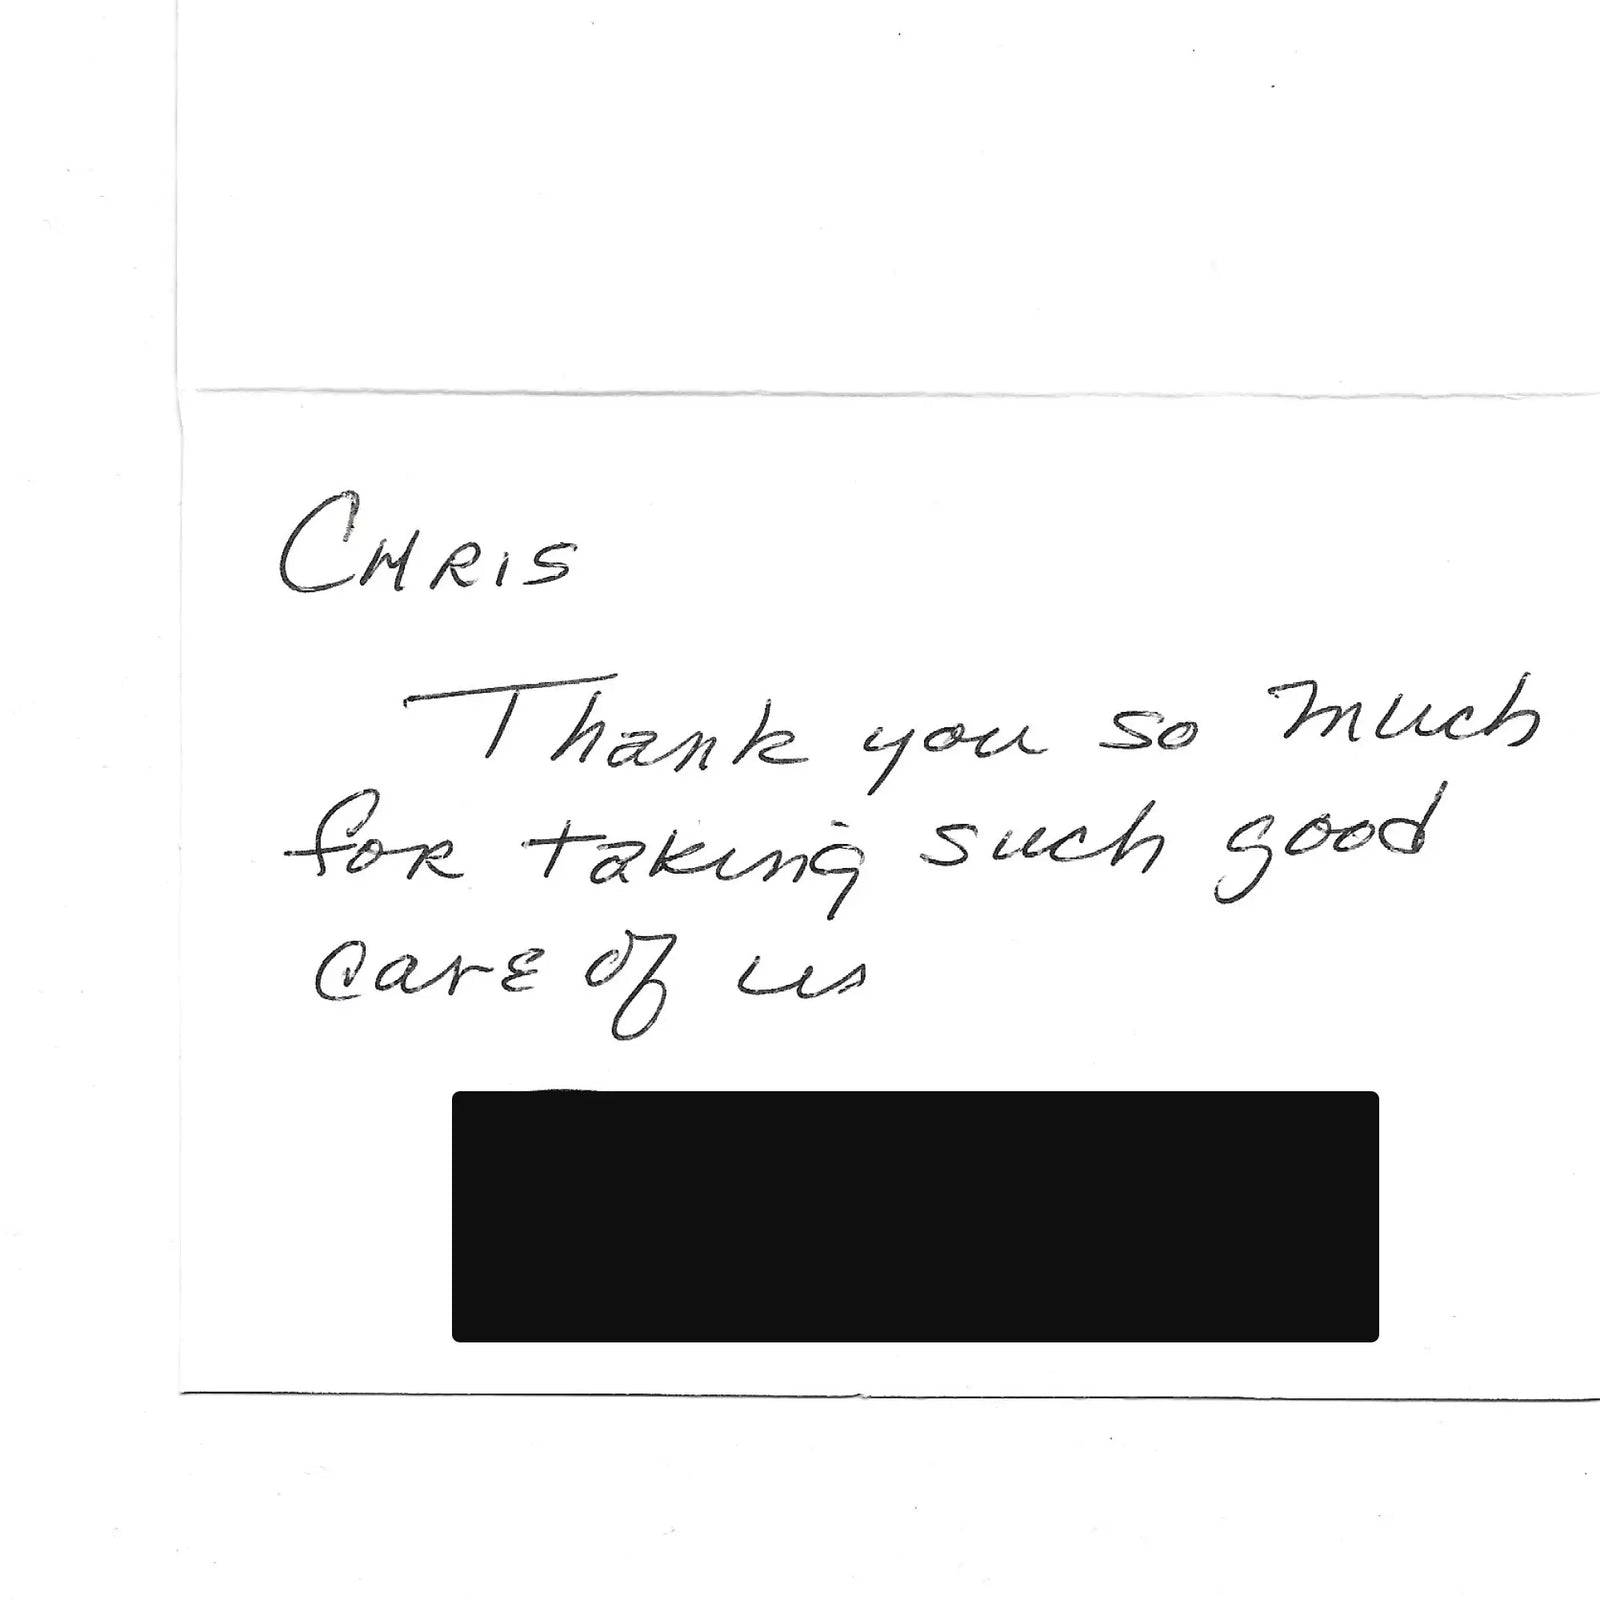 CHRIS
Thank you so much
for taking such good
care of us